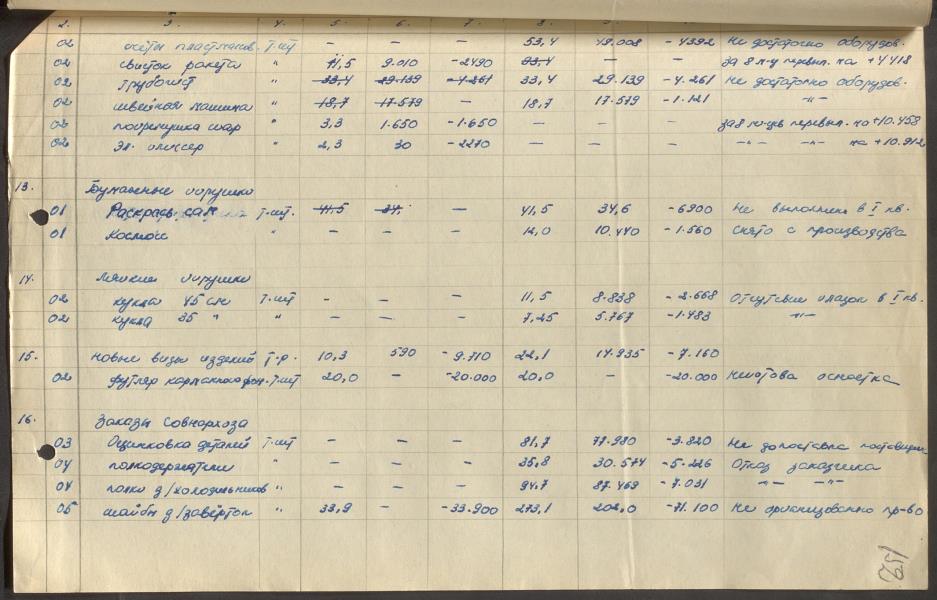 2. 3. 4. 5. 6. 7. 8.
02 пластмасов. т.шт – – – 53,4 49.008 -4392 Не достаточно оборудов.
02 свисток ракета " 11,5 9.010 -2490 93,4 – – За 8 м-ц перевып. на +4418
02 Трубочист " 33,4 29.139 -4.261 33,4 29.139 -4.261 Не достаточно оборудов.
02 швейная машина " 18,7 17.579 – 18,7 17.579 -1.121 -"-
02 погремушка шар " 3,3 1.650 -1.650 – – – за 8 м-цев перевып. на +10.458
02 Эл. " 2,3 30 -2270 – – – -"- -"- на +10.912
13. Бумажные игрушки
01 Раскрась сам т.шт. 41,5 34, – 41,5 34,6 -6900 Не выполнили в I кв.
01 Космос " – – – 12,0 10.440 -1.560 снято с производства
14. Мягкие игрушки
02 кукла 45 см т.шт – – – 11,5 8.838 -2.668 Отсутствие глазок в I кв.
02 кукла 35 " " – – – 7,25 5.767 -1.483 -"-
15. Новые виды изделий т.р. 10,3 590 -9.710 22,1 14.935 -7.160
02 футляр карманного фон. т.шт 20,0 – -20.000 20,0 – -20.000 Неготова оснастка
16. Заказы Совнархоза
03 Оцинковка деталей т.шт – – – 81,7 77.980 -3.820 Не допоставка поставщик
04 полкодержатели " – – – 35,8 30.574 -5.226 Отказ заказчика
04 полки д/холодильников " – – – 94,7 87.469 -7.031 -"- -"-
05 шайбы д/завёрток " 33,9 – -33.900 273,1 202,0 -71.100 Не организованно пр-во